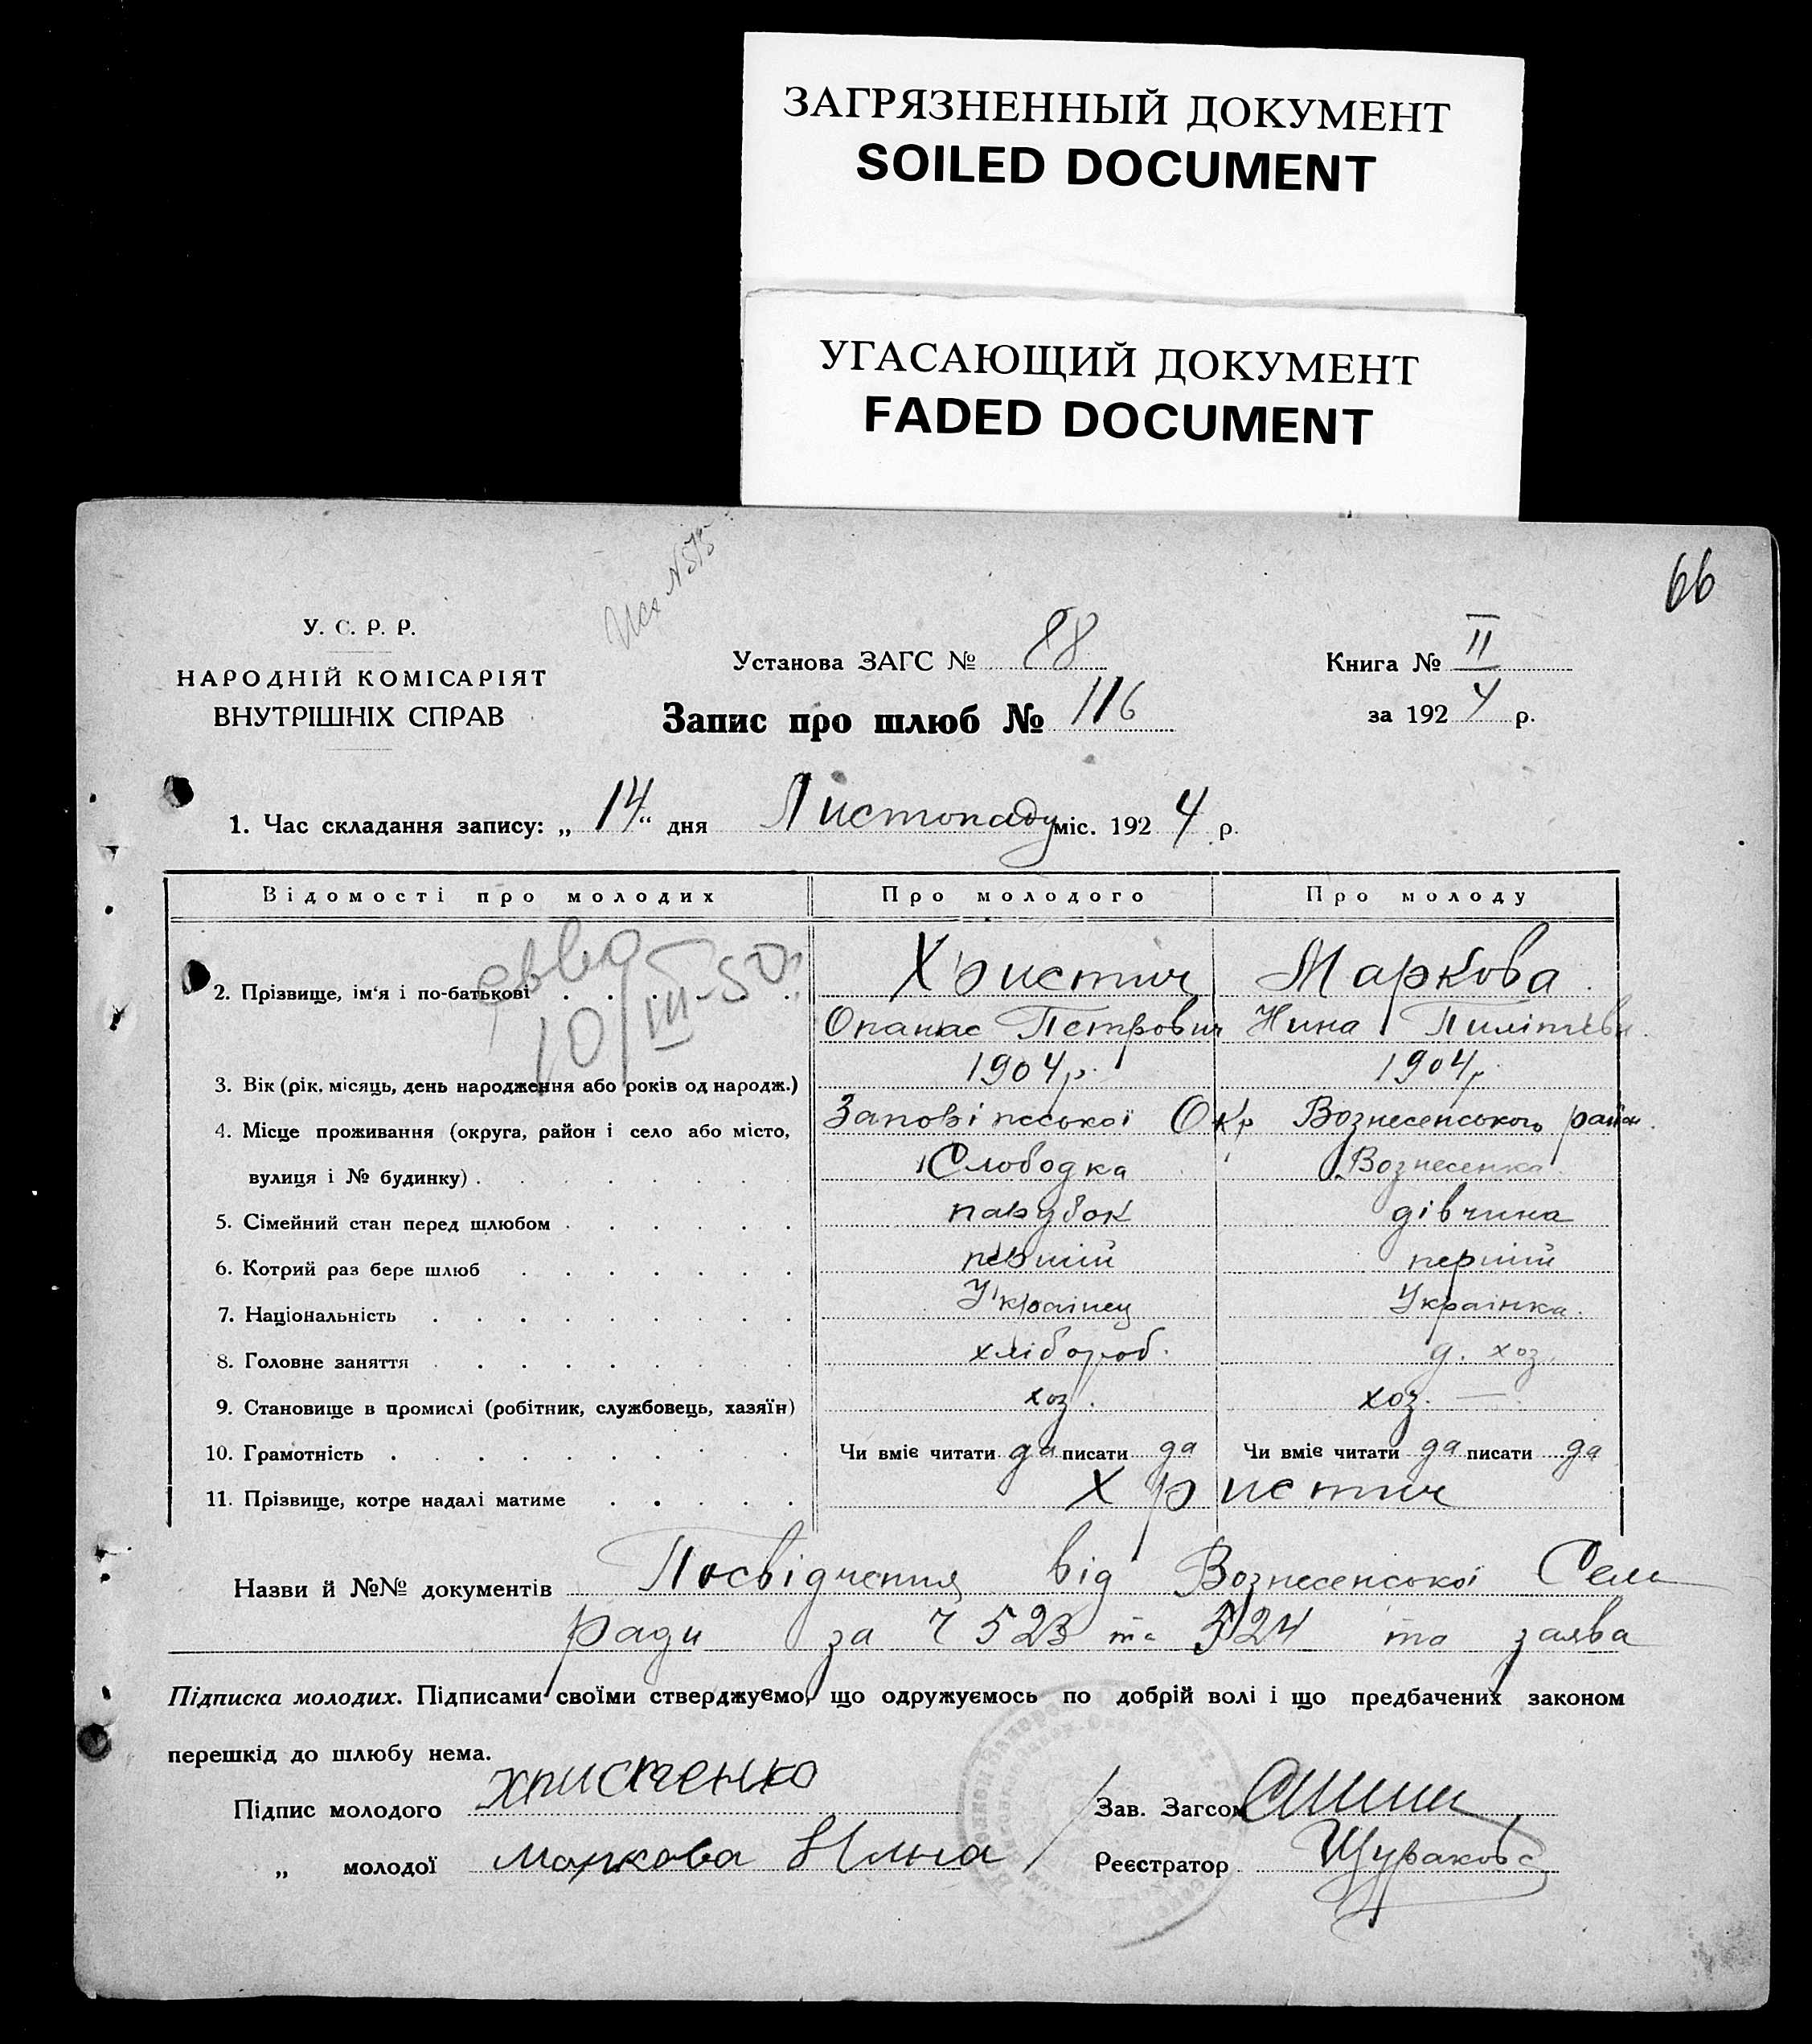 ЗАГРЯЗНЕННЫЙ ДОКУМЕНТ
SOILED DOCUMENT
УГАСАЮЩИЙ ДОКУМЕНТ
FADED DOCUMENT
66
Исх N 575
У. С. Р. Р.
НАРОДНІЙ КОМІСАРІЯТ
ВНУТРІШНІХ СПРАВ
Установа ЗАГС № 88
Книга № II
Запис про шлюб № 116
за 1924 р.
1. Час складання запису: „14“ дня Листопаду міс. 1924 р.
Відомості про молодих Про молодого Про молоду
10/III-50
2. Прізвище, ім‘я і по-батькові Христич Маркова
Опанас Петрович Нина
3. Вік (рік, місяць, день народження або років од народж.) 1904р. 1904р
4. Місце проживання (округа, район і село або місто, Окр Вознесенського район.
вулиця і № будинку) Слободка Вознесенка
5. Сімейний стан перед шлюбом парубок дівчина
6. Котрий раз бере шлюб перший перший
7. Національність Украінец Украінка.
8. Головне заняття хлібороб. д. хоз.
9. Становище в промислі (робітник, службовець, хазяїн) хоз. хоз. —
10. Грамотність Чи вміє читати да писати да Чи вміє читати да писати да
11. Прізвище, котре надалі матиме Христич
Назви й №№ документів Посвідчення від Вознесенської Сель
ради за ч 523 та 524 та заява
Підписка молодих. Підписами своїми стверджуємо, що одружуємось по добрій волі і що предбачених законом
перешкід до шлюбу нема.
Підпис молодого христенко Зав. Загсом
„ молодої маркова Нина Реєстратор